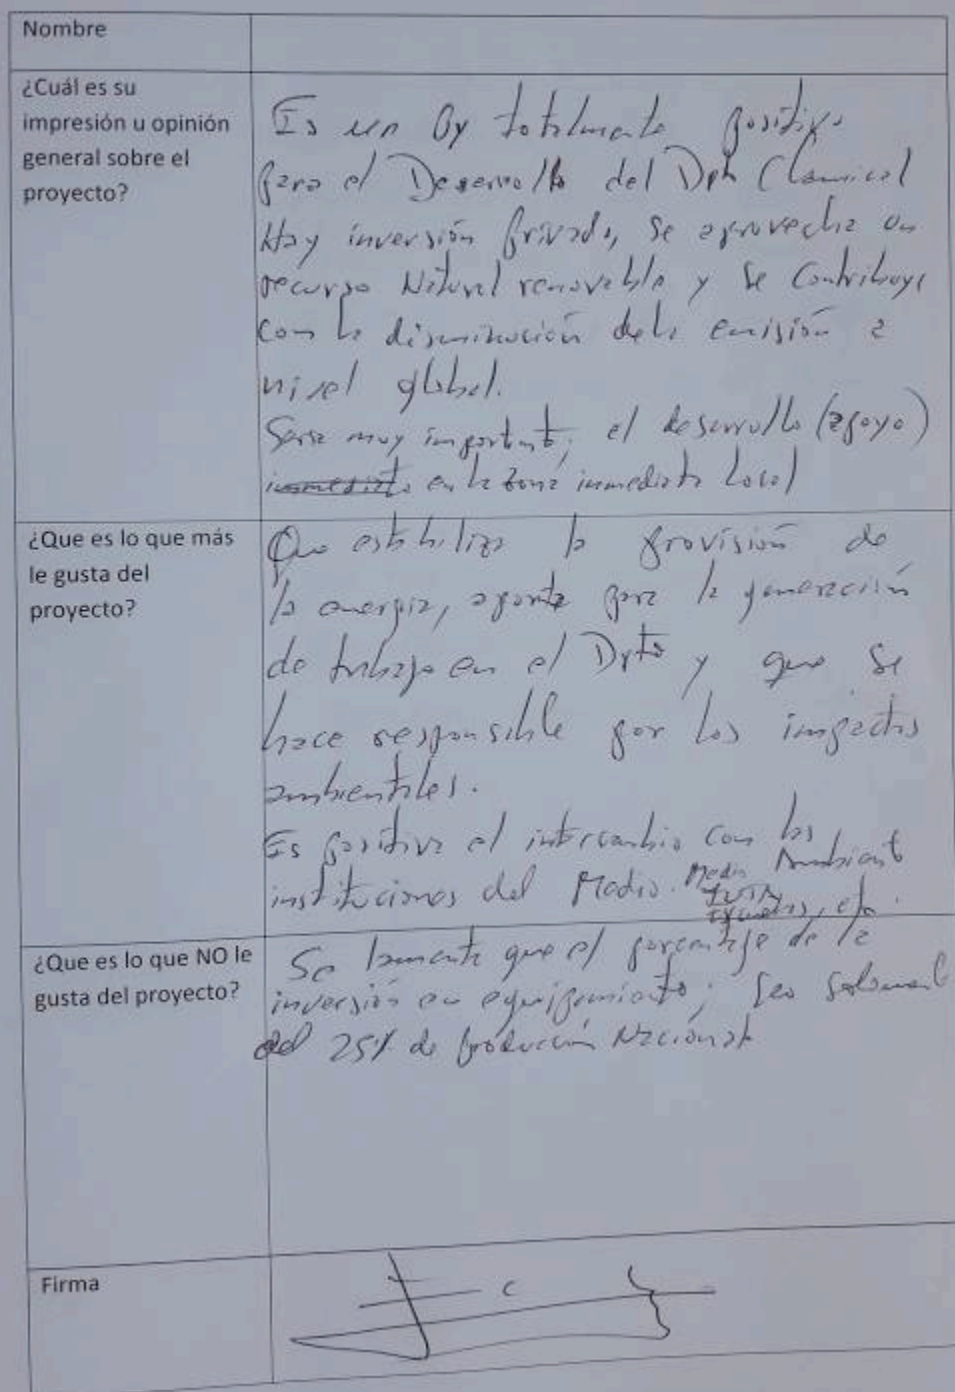 Nombre
¿Cuál es su
impresión u opinión
general sobre el
proyecto?
Es un Py totalmente positivo
para el Desarrollo del Dpto Chamical
Hay inversión privada, se aprovecha un
recurso Natural renovable y se Contribuye
con la disminución de la emisión a
nivel global.
Seria muy importante, el desarrollo (apoyo)
en la zona inmediata Local
¿Que es lo que más
le gusta del
proyecto?
Que estabiliza la provisión de
la energia, aporta para la generación
de trabajo en el Dpto y que se
hace responsable por los impactos
ambientales.
Es positivo el intercambio con las
instituciones del Medio. Medio Ambiente
INTA
Escuelas, etc.
¿Que es lo que NO le
gusta del proyecto?
Se lamenta que el porcentaje de la
inversión en equipamiento; sea solamente
del 25% de producción Nacional
Firma